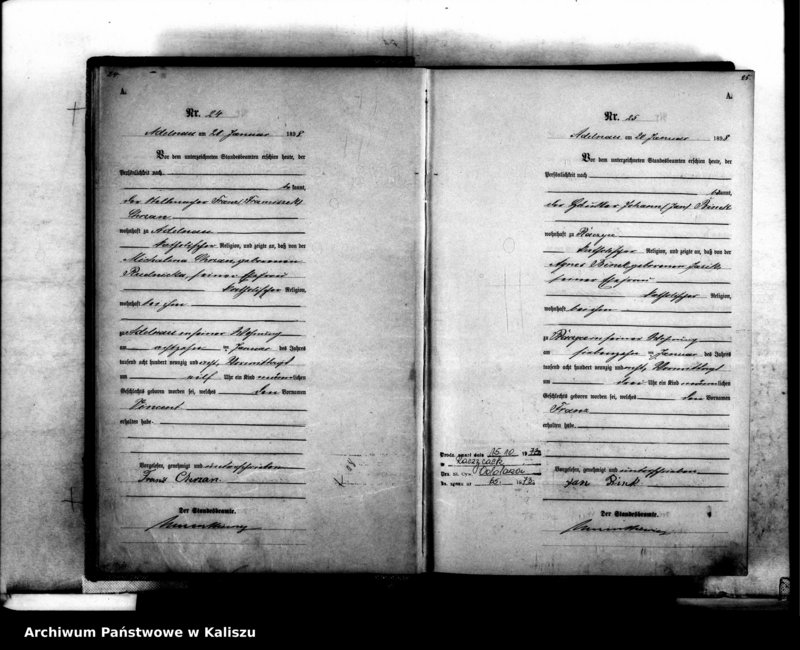 24.
A.
Nr. 24
Adelnau am 20 Januar 1898
Vor dem unterzeichneten Standesbeamten erschien heute, der
Persönlichkeit nach
be kannt,
der Franz Franciszek
Chozan
wohnhaft zu Adelnau
katholischer Religion, und zeigte an, daß von der
Michalina Chozan, geborenen
Rudnicka, seiner Ehefrau
katholischer Religion,
wohnhaft bei ihm
zu Adelnau in seiner Wohnung
am achtzehn ten Januar des Jahres
tausend acht hundert neunzig und acht, Vormittags
um elf Uhr ein Kind männlichen
Geschlechts geboren worden sei, welches den Vornamen
Vincent
erhalten habe.
Vorgelesen, genehmigt und unterschrieben
Franz Chozan
Der Standesbeamte.
25.
A.
Nr. 25
Adelnau am 20 Januar 1898
Vor dem unterzeichneten Standesbeamten erschien heute, der
Persönlichkeit nach
bekannt,
der Johann (Jan)
wohnhaft zu
katholischer Religion, und zeigte an, daß von der
Agnes geborenen
seiner Ehefrau
katholischer Religion,
wohnhaft bei ihm
zu in seiner Wohnung
am siebenzehn ten Januar des Jahres
tausend acht hundert neunzig und acht, Vormittags
um drei Uhr ein Kind männlichen
Geschlechts geboren worden sei, welches den Vornamen
Franz
erhalten habe.
Vorgelesen, genehmigt und unterschrieben
Jan
Der Standesbeamte.
Archiwum Państwowe w Kaliszu